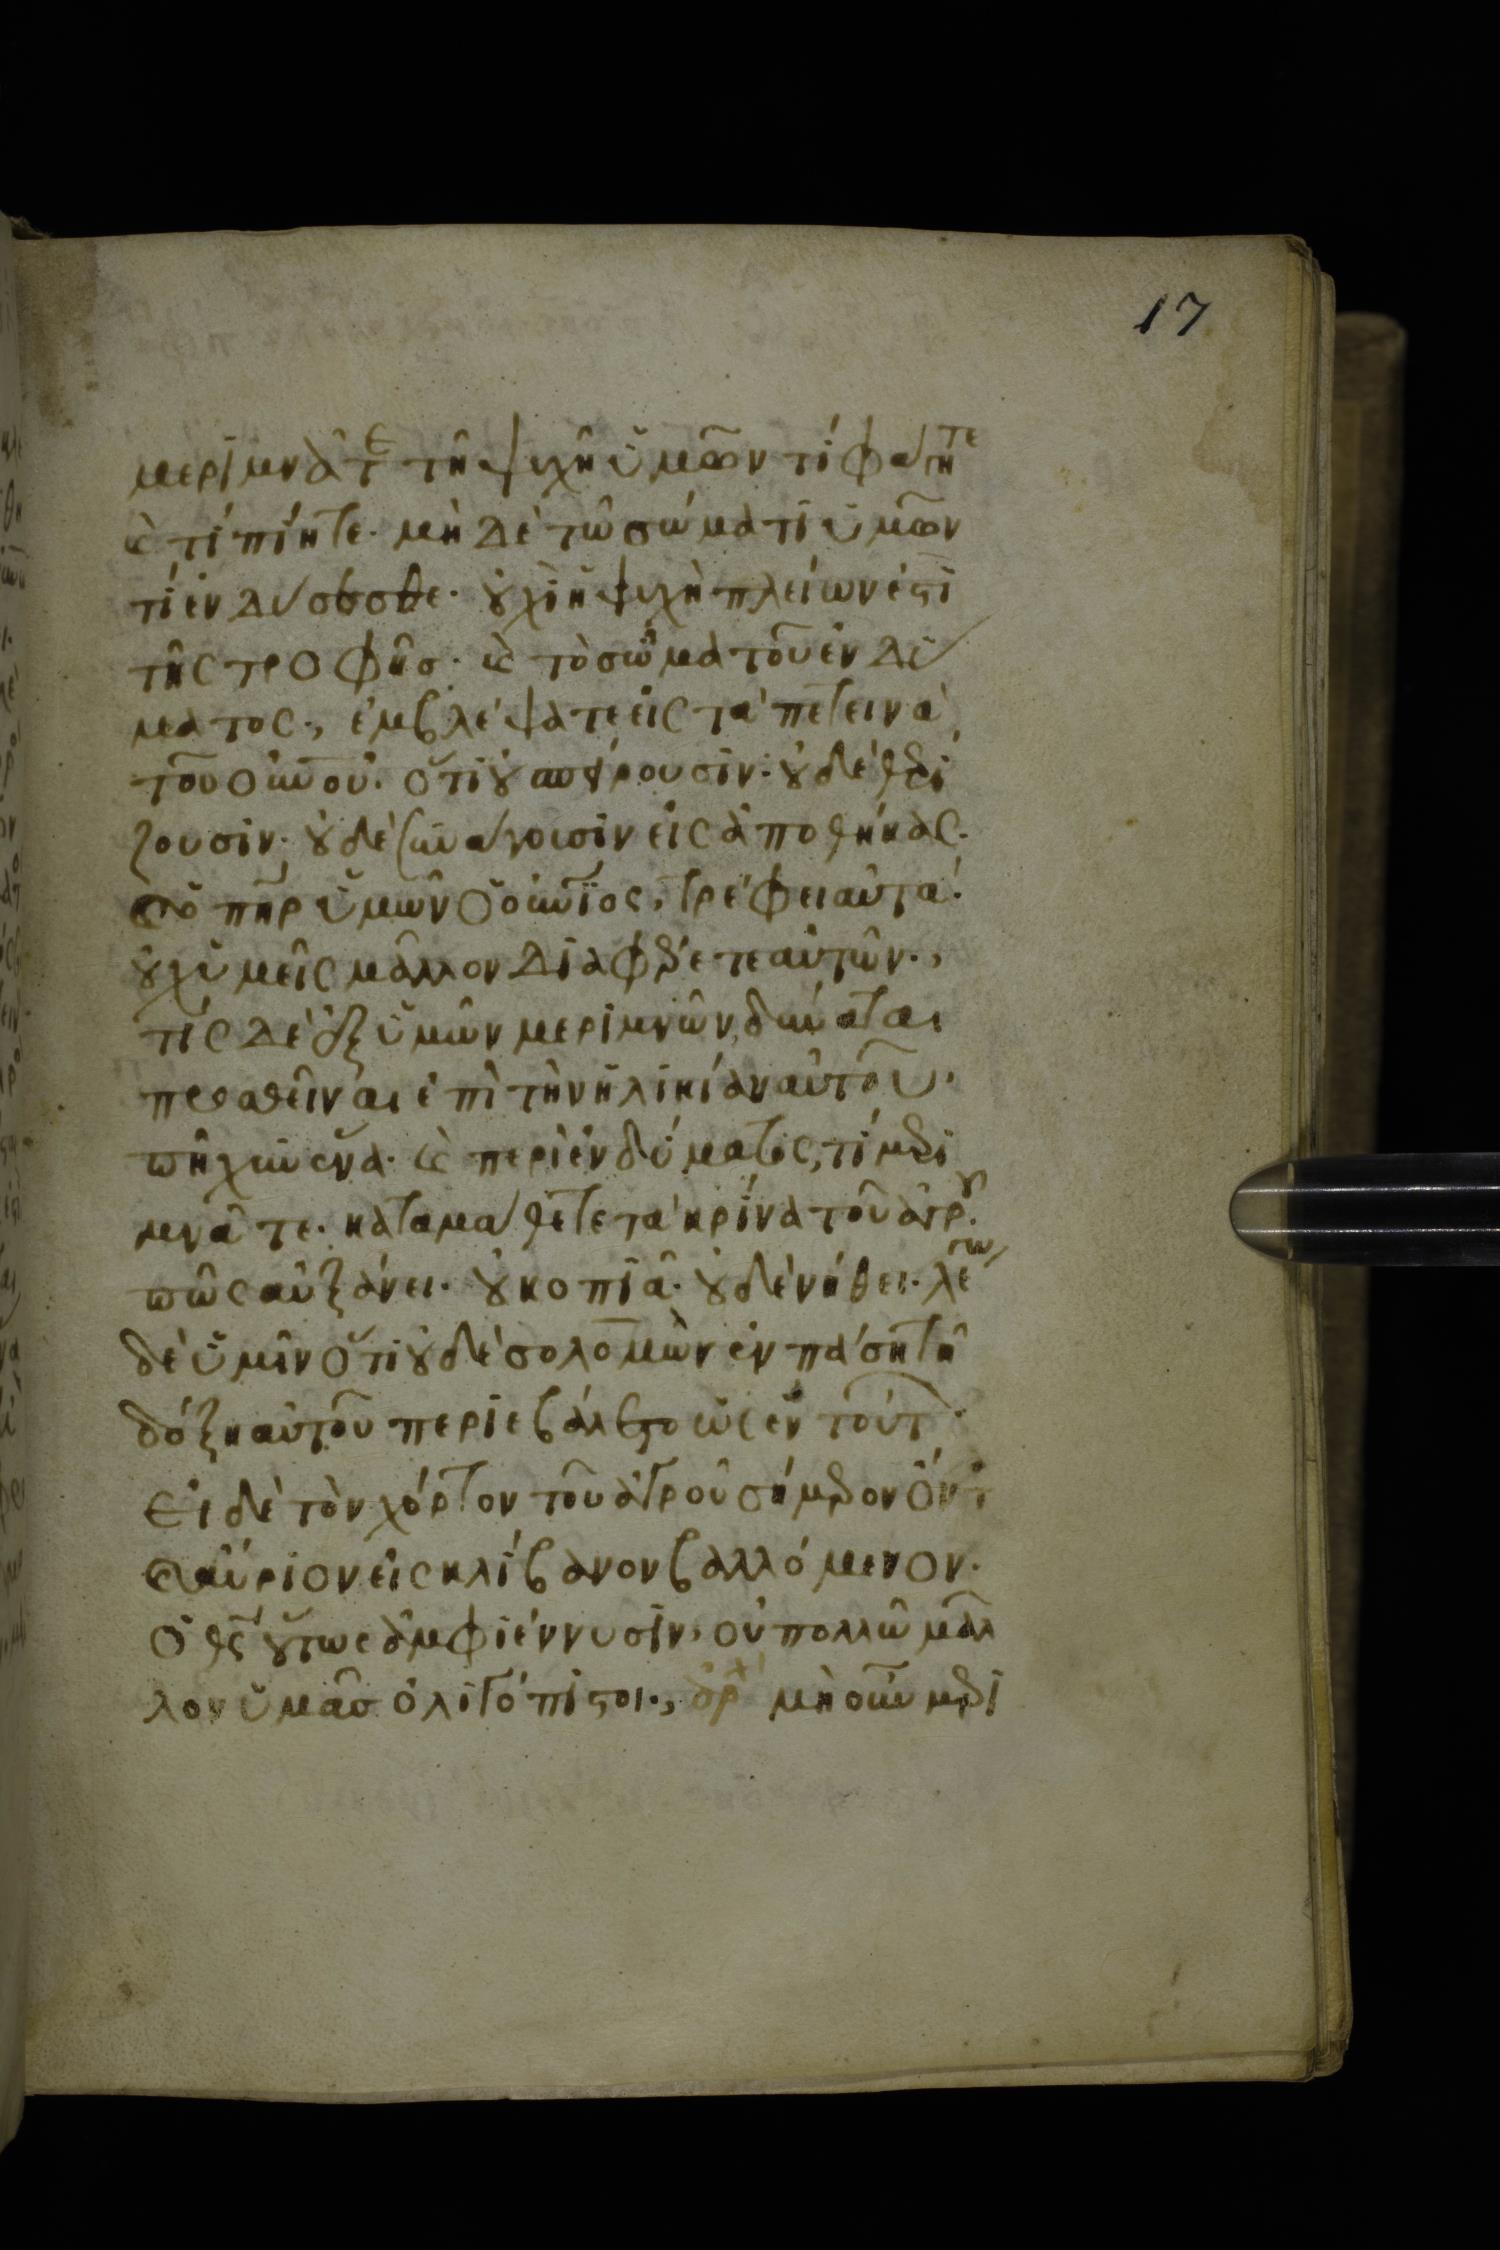 17
μεριμνᾶτε τῆ ψυχῆ ὑμῶν τί φάγητε
καὶ τί πίητε· μὴ δὲ τῶ σώματι ὑμῶν
τί ἐνδύσησθε· οὐχὶ ἡ ψυχὴ πλείων ἐστι
τῆς τροφῆς· καὶ τὸ σῶμα τοῦ ἐνδύ
ματος., ἐμβλέψατε εἰς τὰ πετεινὰ
τοῦ οὐνοῦ. ὅτι οὐ σπείρουσιν· οὐδὲ θερί
ζουσιν· οὐδὲ συνάγουσιν εἰς ἀποθήκας.
καὶ ὁ πηρ ὑμῶν ὁ οὐνιος, τρέφει αὐτά.
οὐχ ὑμεῖς μᾶλλον διαφέρετε αὐτῶν.,
τίς δὲ ἐξ ὑμῶν μεριμνῶν, δύναται
προσθεῖναι ἐπὶ τὴν ἡλικίαν αὐτοῦ.
πῆχυν ἕνα· καὶ περὶ ἐνδύματος, τί μερι
μνᾶτε· καταμάθετε τὰ κρίνα τοῦ ἀγροῦ.
πῶς αὐξάνει· οὐ κοπιᾶ· οὐδὲ νήθει· λέγω
δὲ ὑμῖν ὅτι οὐδὲ σολομὼν ἐν πάση τῆ
δόξη αὐτοῦ περιεβάλετο ὡς ἓν τούτων·
Εἰ δὲ τὸν χόρτον τοῦ ἀγροῦ σήμερον ὄντα
καὶ αὔριον εἰς κλίβανον βαλλόμενον.
ὁ θς οὕτως ἀμφιέννυσιν, οὐ πολλῶ μᾶλ
λον ὑμᾶς ὀλιγόπιστοι., μὴ οὖν μερι